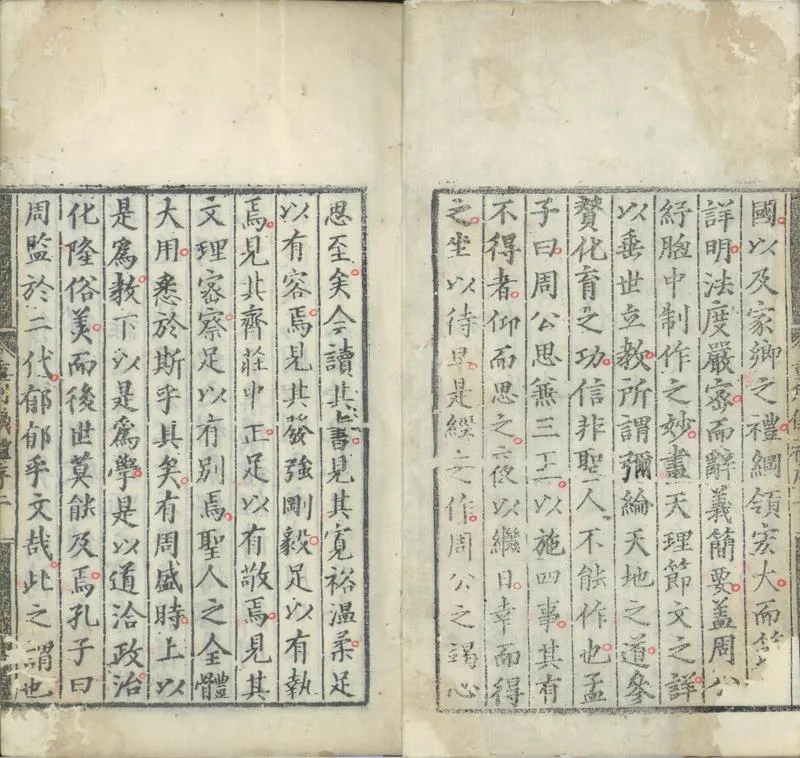 國以及家鄉之禮綱領宏大而節
詳明法度嚴密而辭義簡要蓋周公
紓脇中制作之妙盡天理節文之詳
以垂世立教所謂彌綸天地之道參
贊化育之功信非聖人不能作也孟
子曰周公思兼三王以施四事其有
不得者仰而思之夜以繼日幸而得
之坐以待旦是經之作周公之竭心
思至矣今讀其書見其寬裕溫柔足
以有容焉見其發強剛毅足以有執
焉見其齊莊中正足以有敬焉見其
文理密察足以有別焉聖人之全體
大用悉於斯乎具矣有周盛時上以
是爲教下以是爲學是以道洽政治
化隆俗美而後世莫能及焉孔子曰
周監於二代郁郁乎文哉此之謂也